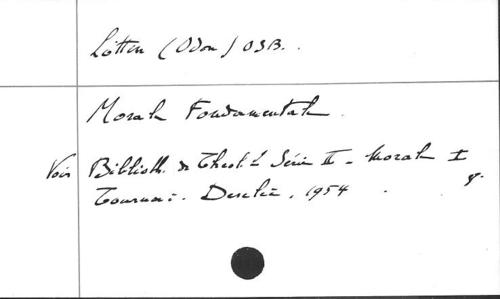 Lottin (Odon) OSB.
Morale Fondamentale.
Voir Biblioth. de Théol. Série II - Morale I
Tournai. Desclée, 1954